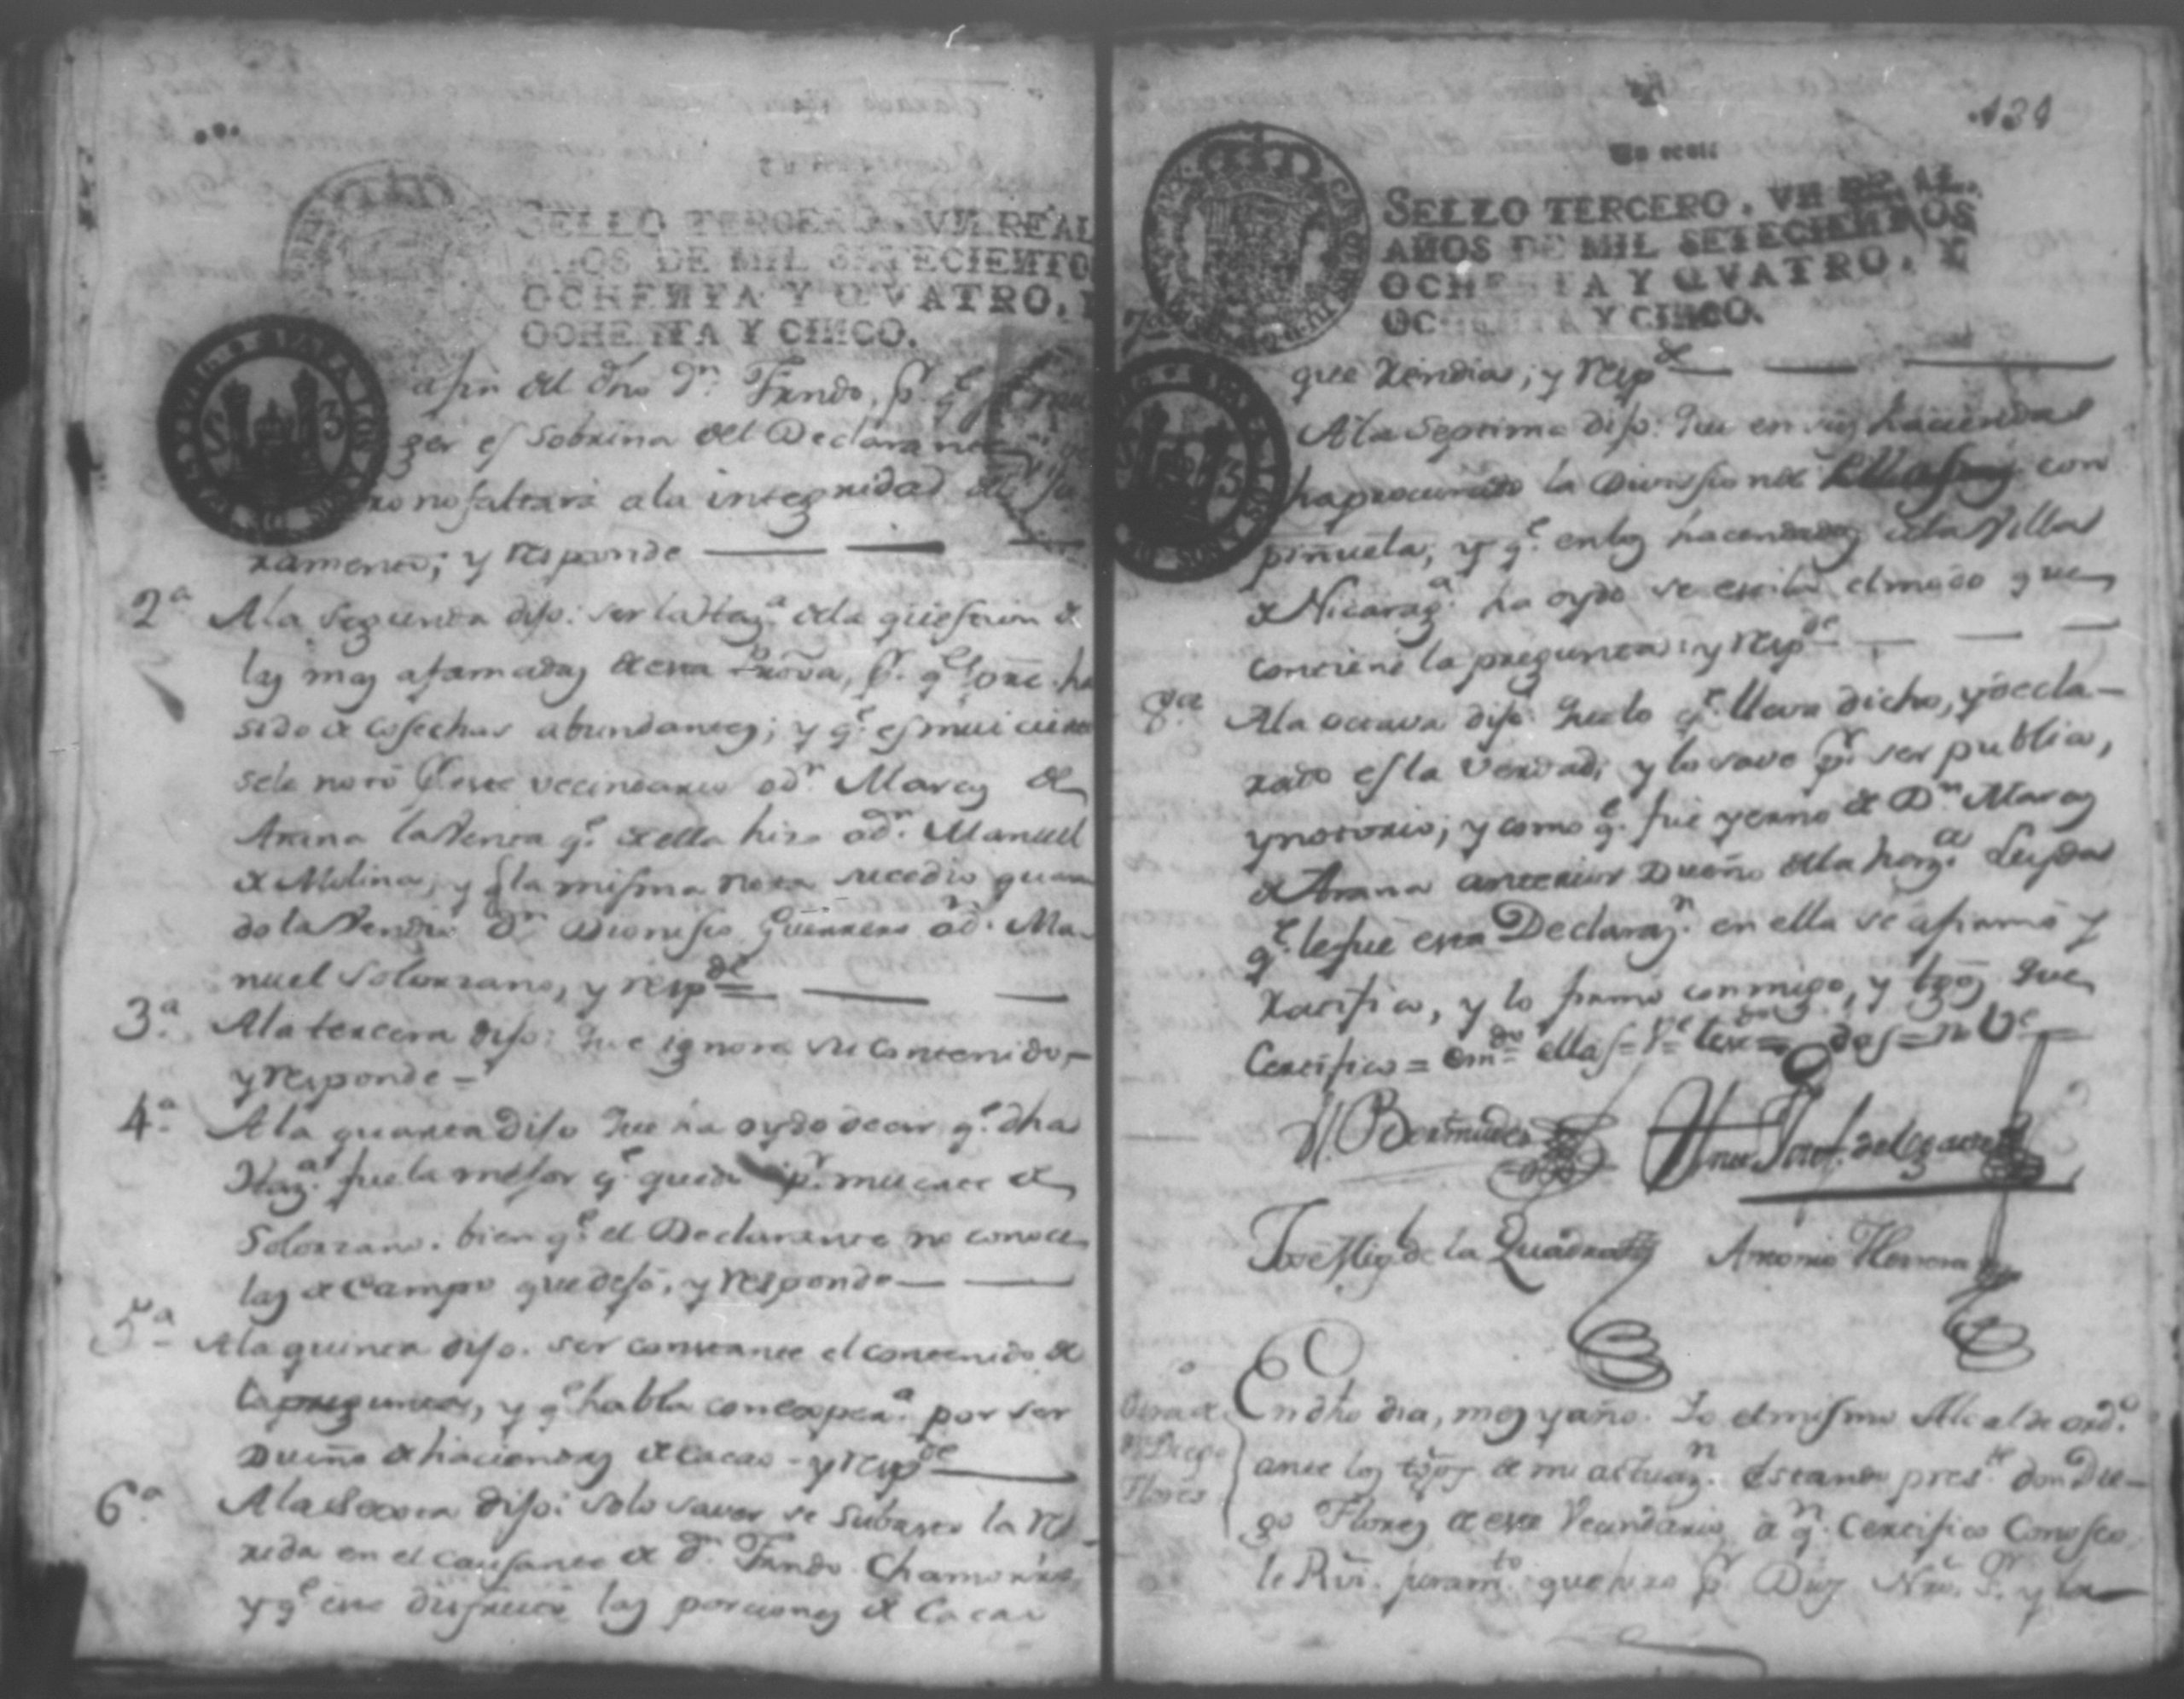 SELLO TERCERO, VN REAL
AÑOS DE MIL SETECIENTO
OCHENTA Y QVATRO, Y
OCHENTA Y CINCO.
afin del dho Dn. Frndo, pr. qe
ger es Sobrina del Declarante
ro no faltara ala integridad del ju
ramento; y responde
2a. Ala segunda dijo: ser la Haza. dela question de
las mas afamadas de esta Prova, pr. qe siempre ha
sido de cosechas abundantes; y qe. es mui cierto
sele notó pr. este vecindario a Dn. Marcos de
Arana la Venta qe. de ella hizo a Dn. Manuel
de Molina, y qe la misma nota sucedio quan
do la Vendio Dn. Dionisio Guerrero a Dn. Ma-
nuel Solorzano, y respde
3a. Ala tercera dijo: Que ignora su contenido,
y responde
4a. Ala quarta dijo Que ha oydo decir qe. dha
Haza. fue la mejor qe. quedó pr. muerte de
Solorzano. bien qe. el Declarante no conoce
las de Campo que dejó, y responde
5a. Ala quinta dijo. ser constante el contenido de
la pregunta, y qe habla con expera. por ser
Dueño de haciendas de cacao - y respde
6a. Ala Sexta dijo: solo saver se Subastó la re
rida en el causante de Dn. Frndo. Chamorro,
y qe este disfrutó las porciones de Cacao
131
SELLO TERCERO, VN REAL,
AÑOS DE MIL SETECIENTOS
OCHENTA Y QVATRO, Y
OCHENTA Y CINCO.
que rendia; y respde
7a. Ala Septima dijo: Que en sus haciendas
ha procurado la Division de con
piñuela, y qe. en los hacendados dela Villa
de Nicarага. ha oydo se estila el modo que
contiene la pregunta: y respde
8a. Ala octava dijo: Que lo qe. lleva dicho, y decla-
rado es la Verdad; y lo save pr. ser publico,
y notorio; y como qe. fue yerno de Dn. Marcos
de Arana anterior Dueño dela haza. Leyda
qe. le fue esta Declarazn. en ella se afirmó y
ratificó, y lo firmó conmigo, y tgos Que
Certifico = emdo = ellas =
N. Bermudez
Jose Migl. de la Quadra Antonio Herrera
Otra de
Dn. Diego
Flores
En dho dia, mes y año. Yo el mismo Alcalde ordo.
ante los tgos de mi actuazn. Estando preste. don Die-
go Flores de este Vecindario a qn. Certifico Conosco
le Rvi. juramto. que hizo pr. Dios Nro. Sr. y la